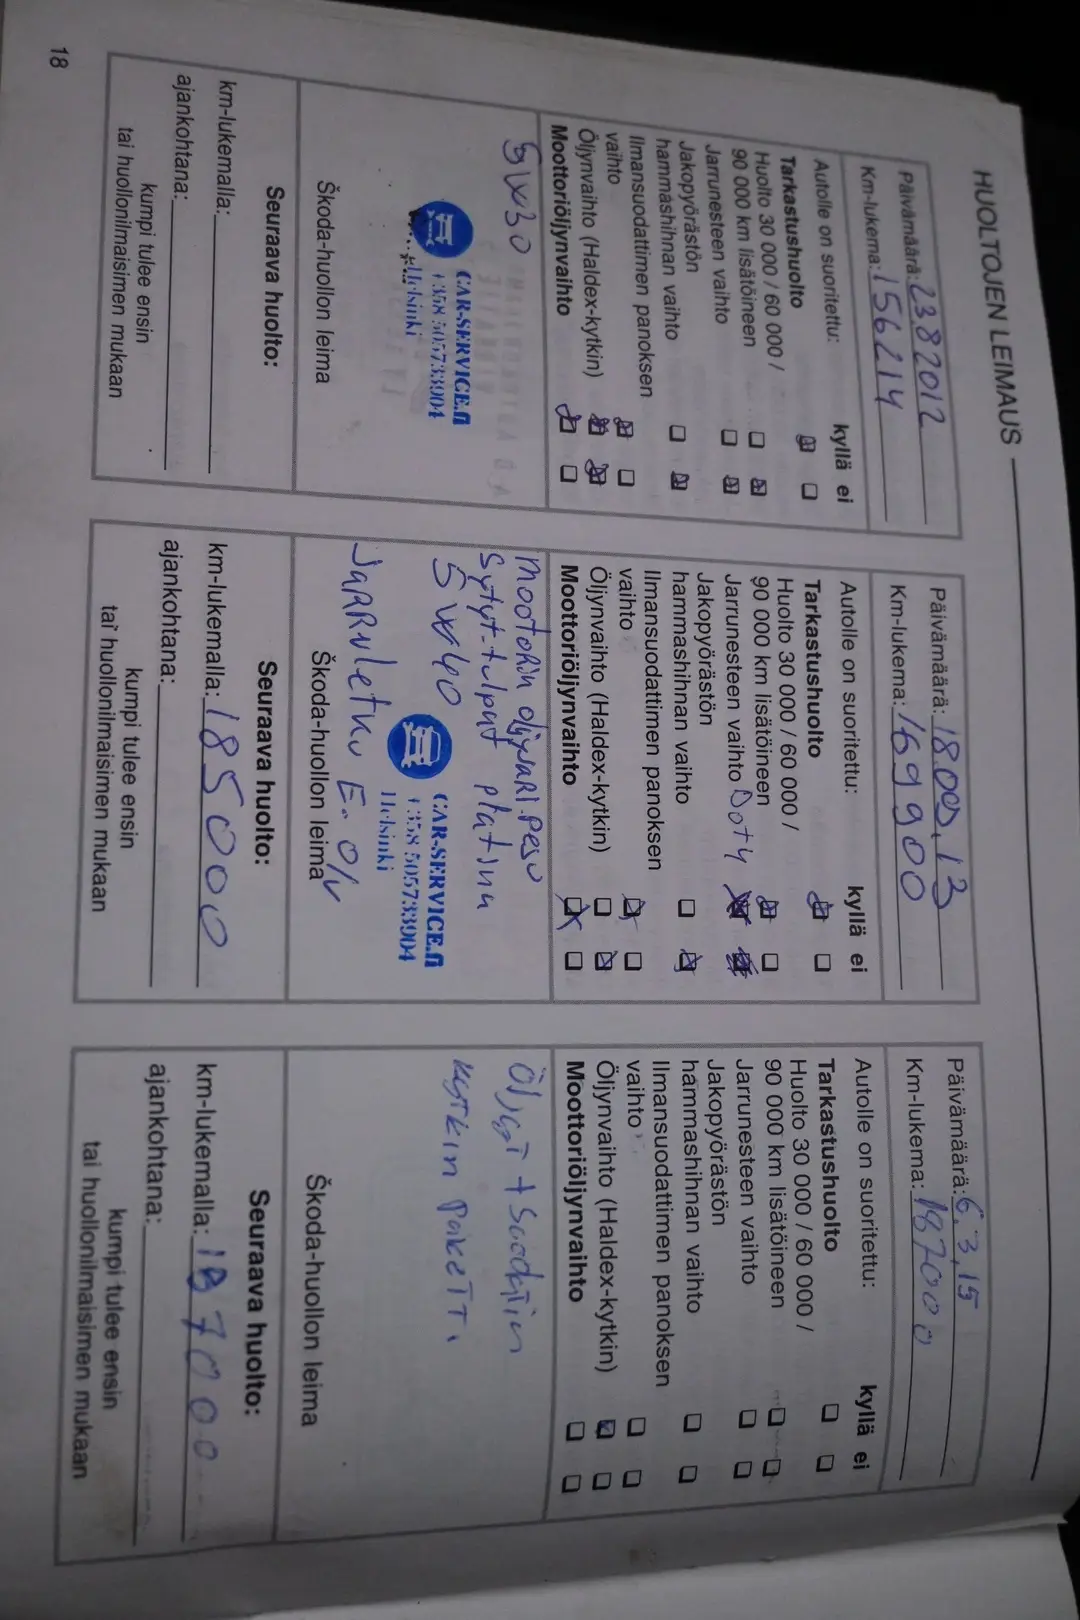 HUOLTOJEN LEIMAUS
Päivämäärä: 2382012
Km-lukema: 156214
Autolle on suoritettu: kyllä ei
Tarkastushuolto
Huolto 30 000 / 60 000 /
90 000 km lisätöineen
Jarrunesteen vaihto
Jakopyörästön
hammashihnan vaihto
Ilmansuodattimen panoksen
vaihto
Öljynvaihto (Haldex-kytkin)
Moottoriöljynvaihto
5W30
CAR-SERVICE.fi
+358 505733904
Helsinki
Škoda-huollon leima
Seuraava huolto:
km-lukemalla:
ajankohtana:
kumpi tulee ensin
tai huollonilmaisimen mukaan
Päivämäärä:
Km-lukema: 169900
Autolle on suoritettu: kyllä ei
Tarkastushuolto
Huolto 30 000 / 60 000 /
90 000 km lisätöineen
Jarrunesteen vaihto Dot4
Jakopyörästön
hammashihnan vaihto
Ilmansuodattimen panoksen
vaihto
Öljynvaihto (Haldex-kytkin)
Moottoriöljynvaihto
Sytyt.tulpat
5W40
CAR-SERVICE.fi
+358 505733904
Helsinki
Jarruletku E. O/V
Škoda-huollon leima
Seuraava huolto:
km-lukemalla: 185000
ajankohtana:
kumpi tulee ensin
tai huollonilmaisimen mukaan
Päivämäärä: 6.3,15
Km-lukema: 187000
Autolle on suoritettu: kyllä ei
Tarkastushuolto
Huolto 30 000 / 60 000 /
90 000 km lisätöineen
Jarrunesteen vaihto
Jakopyörästön
hammashihnan vaihto
Ilmansuodattimen panoksen
vaihto
Öljynvaihto (Haldex-kytkin)
Moottoriöljynvaihto
Öljyt + Suodatin
Kytkin paketti.
Škoda-huollon leima
Seuraava huolto:
km-lukemalla: 197000
ajankohtana:
kumpi tulee ensin
tai huollonilmaisimen mukaan
18